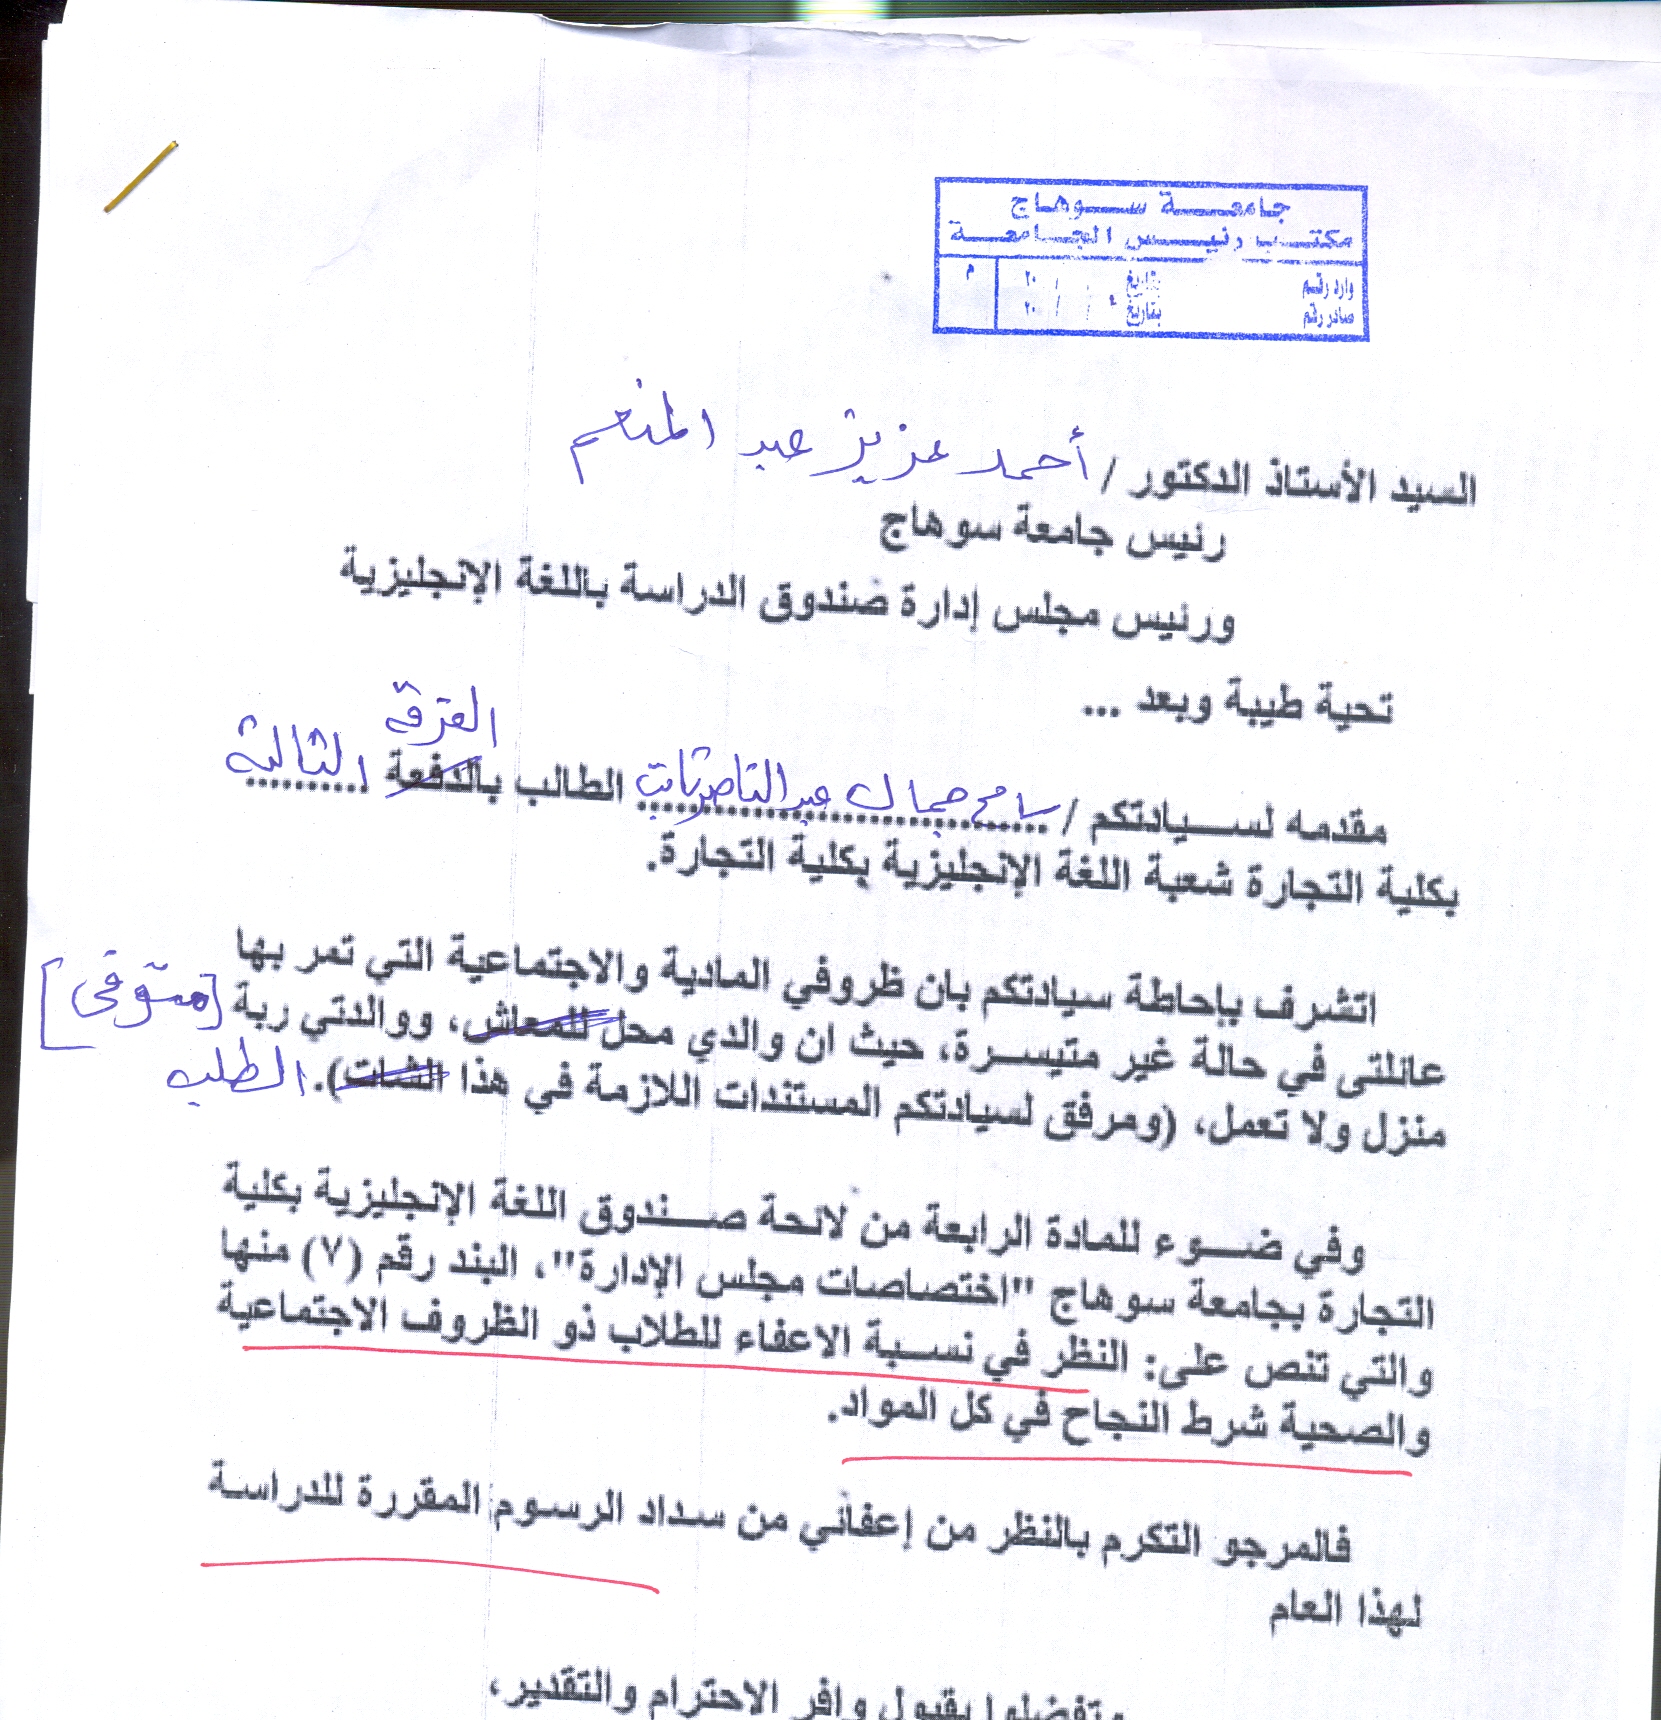 جامعة سوهاج
مكتب رئيس الجامعة
وارد رقم بتاريخ / / ٢٠ م
صادر رقم بتاريخ / / ٢٠
السيد الأستاذ الدكتور / أحمد عزيز عبد المنعم
رئيس جامعة سوهاج
ورئيس مجلس إدارة صندوق الدراسة باللغة الإنجليزية
تحية طيبة وبعد ...
الفرقة
مقدمه لسيادتكم / سامح جمال عبد الناصر ثابت الطالب بالدفعة الثالثة
بكلية التجارة شعبة اللغة الإنجليزية بكلية التجارة.
اتشرف بإحاطة سيادتكم بان ظروفي المادية والاجتماعية التي تمر بها
عائلتى في حالة غير متيسرة، حيث ان والدي محل للمعاش، ووالدتي ربة [متوفى]
منزل ولا تعمل، (ومرفق لسيادتكم المستندات اللازمة في هذا الشات). الطلب
وفي ضوء للمادة الرابعة من لائحة صندوق اللغة الإنجليزية بكلية
التجارة بجامعة سوهاج "اختصاصات مجلس الإدارة"، البند رقم (٧) منها
والتي تنص على: النظر في نسبة الاعفاء للطلاب ذو الظروف الاجتماعية
والصحية شرط النجاح في كل المواد.
فالمرجو التكرم بالنظر من إعفائي من سداد الرسوم المقررة للدراسة
لهذا العام
وتفضلوا بقبول وافر الاحترام والتقدير،